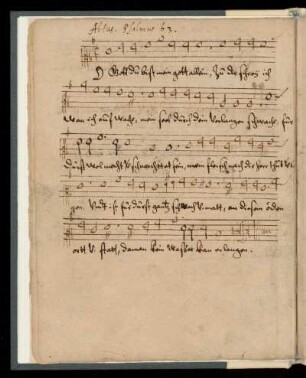 Altus. Psalmus 63.
O Gott du bist mein gott allein, Zu dir schrey ich
Wan ich auf wache, mein seel durch dein verlangen schwach, für
durst wol macht verschmachtet sein, mein fleisch nach dir herr thut
gen. Und ist für durst gantz schwach V. matt, an diesem öden
ortt V. statt, da man kein wasser kan erlangen.